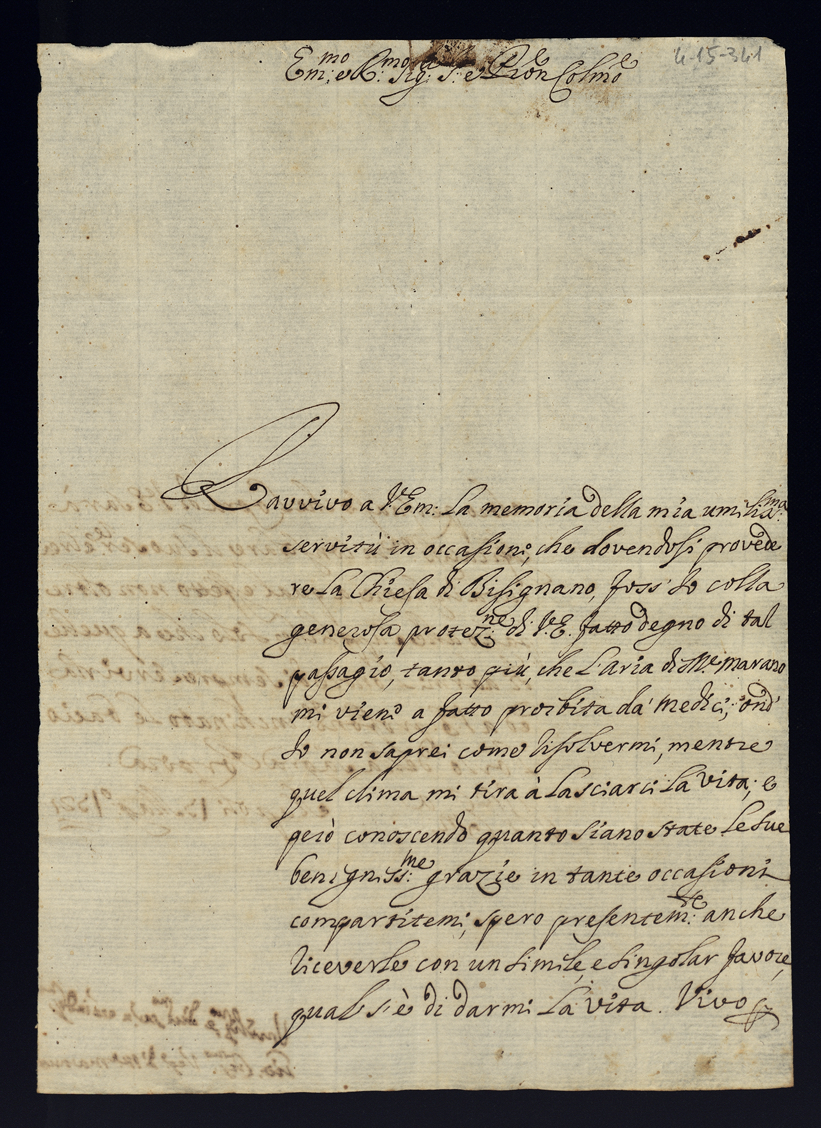 4-15-341
Em.mo e R.mo Sig: S.e P̃ron Colmo
Ravvivo a V.Em: la memoria della mia umilis:ma
servitù in occasione, che dovendosi provede
re la Chiesa di Bisignano, foss'Io colla
generosa protez:ne di V.E. fatto degno di tal
passagio, tanto più, che l'aria di M.e marano
mi viene a fatto proibita da' Medici, ond'
Io non saprei come risolvermi, mentre
quel clima mi tira à lasciarci la vita; e
però conoscendo quanto siano state le sue
benigniss:me grazie in tante occasioni
compartitemi, spero presentem:te anche
riceverle con un simile, e singolar favore,
qual s'è di darmi la vita. Vivo